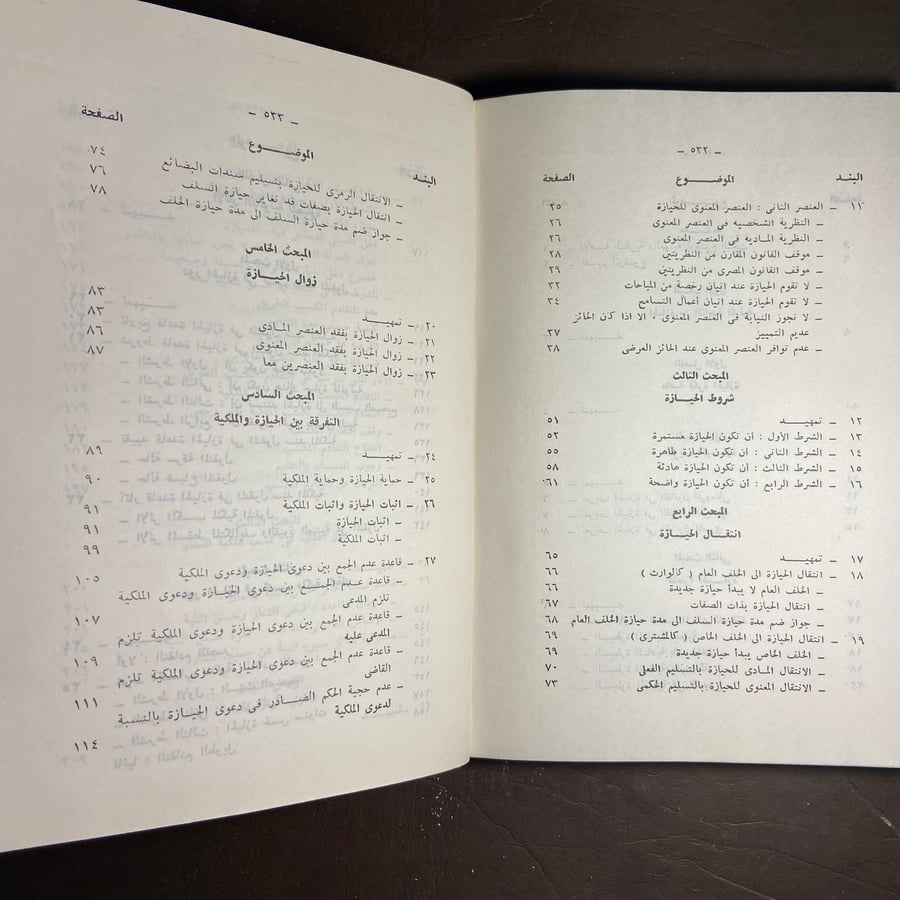 — ٥٣٢ —
البند الموضـــوع الصفحة
١١ — العنصر الثانى : العنصر المعنوى للحيازة ٢٥
— النظرية الشخصيه فى العنصر المعنوى ٢٦
— النظرية الماديه فى العنصر المعنوى ٢٦
— موقف القانون المقارن من النظريتين ٢٨
— موقف القانون المصرى من النظريتين ٢٩
— لا تقوم الحيازة عند اتيان رخصة من المباحات ٣٢
— لا تقوم الحيازة عند اتيان أعمال التسامح ٣٤
— لا تجوز النيابة فى العنصر المعنوى ، الا اذا كان الحائز
عديم التمييز ٣٧
— عدم توافر العنصر المعنوى عند الحائز العرضى ٣٨
المبحث الثالث
شروط الحيازة
١٢ — تمهيـــد ٥١
١٣ — الشرط الأول : أن تكون الحيازة مستمرة ٥٢
١٤ — الشرط الثانى : أن تكون الحيازة ظاهرة ٥٥
١٥ — الشرط الثالث : أن تكون الحيازة هادئة ٥٨
١٦ — الشرط الرابع : أن تكون الحيازة واضحة ٦١
المبحث الرابع
انتقـــال الحيازة
١٧ — تمهيـــد ٦٥
١٨ — انتقال الحيازة الى الخلف العام ( كالوارث ) ٦٦
— الخلف العام لا يبدأ حيازة جديدة ٦٦
— انتقال الحيازة بذات الصفات ٦٧
— جواز ضم مدة حيازة السلف الى مدة حيازة الخلف العام ٦٨
١٩ — انتقال الحيازة الى الخلف الخاص ( كالمشترى ) ٦٩
— الخلف الخاص يبدأ حيازة جديدة ٦٩
— الانتقال المادى للحيازة بالتسليم الفعلى ٧٠
— الانتقال المعنوى للحيازة بالتسليم الحكمى ٧٣
— ٥٣٣ —
البند الموضـــوع الصفحة
— الانتقال الرمزى للحيازة بتسليم سندات البضائع ٧٤
— انتقال الحيازة بصفات قد تغاير حيازة السلف ٧٦
— جواز ضم مدة حيازة السلف الى مدة حيازة الخلف ٧٨
المبحث الخامس
زوال الحيـــازة
٢٠ — تمهيـــد ٨٣
٢١ — زوال الحيازة بفقد العنصر المادى ٨٣
٢٢ — زوال الحيازة بفقد العنصر المعنوى ٨٦
٢٣ — زوال الحيازة بفقد العنصرين معا ٨٧
المبحث السادس
التفرقة بين الحيازة والملكية
٢٤ — تمهيـــد ٨٩
٢٥ — حماية الحيازة وحماية الملكية ٩٠
٢٦ — اثبات الحيازة واثبات الملكية ٩١
— اثبات الحيازة ٩١
— اثبات الملكية ٩٩
٢٧ — قاعدة عدم الجمع بين دعوى الحيازة ودعوى الملكية ١٠٥
— قاعدة عـدم الجمـع بين دعوى الحيـازة ودعوى الملكية
تلزم المدعى ١٠٧
— قاعدة عدم الجمع بين دعوى الحيازة ودعوى الملكية تلزم
المدعى عليه ١٠٩
— قاعدة عدم الجمع بين دعوى الحيازة ودعوى الملكية تلزم
القاضى ١١١
— عدم حجية الحكم الصـــادر فى دعوى الحيـــازة بالنسبة
لدعوى الملكية ١١٤